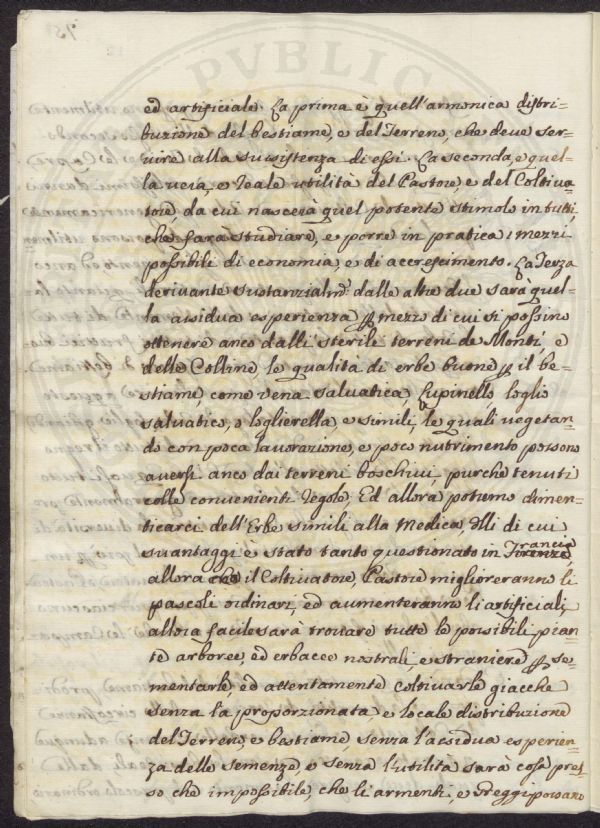 ed artificiale. La prima è quell'armonica distri-
buzione del bestiame, e del Terreno, che deve ser-
vire alla sussistenza di essi. La seconda, e quel-
la vera, e reale utilità del Pastore, e del Coltiva-
tore, da cui nascerà quel potente stimolo in tutti,
che farà studiare, e porre in pratica i mezzi
possibili di economia, e di accrescimento. La Terza
derivante sustanzialm.e dalle altre due sarà quel-
la assidua esperienza p mezzo di cui si possino
ottenere anco dalli sterili terreni de Monti, e
delle Colline le qualità di erbe buone p il be-
stiame, come vena salvatica, Lupinello, loglio
salvatico, o loglierella, e simili, le quali vegetan-
do con poca lavorazione, e poco nutrimento possono
aversi anco dai terreni boschivi, purche tenuti
colle convenienti regole. Ed allora potremo dimen-
ticarci dell'Erbe simili alla Medica, dlli di cui
svantaggi è stato tanto questionato in Francia,
allora che il Coltivatore, Pastore miglioreranno li
pascoli ordinarj, ed aumenteranno li artificiali,
allora facile sarà trovare tutte le possibili pian-
te arboree, ed erbacee nostrali, e straniere p se-
mentarle, ed attentamente coltivarle giacche
senza la proporzionata, e locale distribuzione
del Terreno, e bestiame, senza l'assidua esperien-
za delle semenze, e senza l'utilità sarà cosa pres-
so che impossibile, che li armenti, e Greggi possano